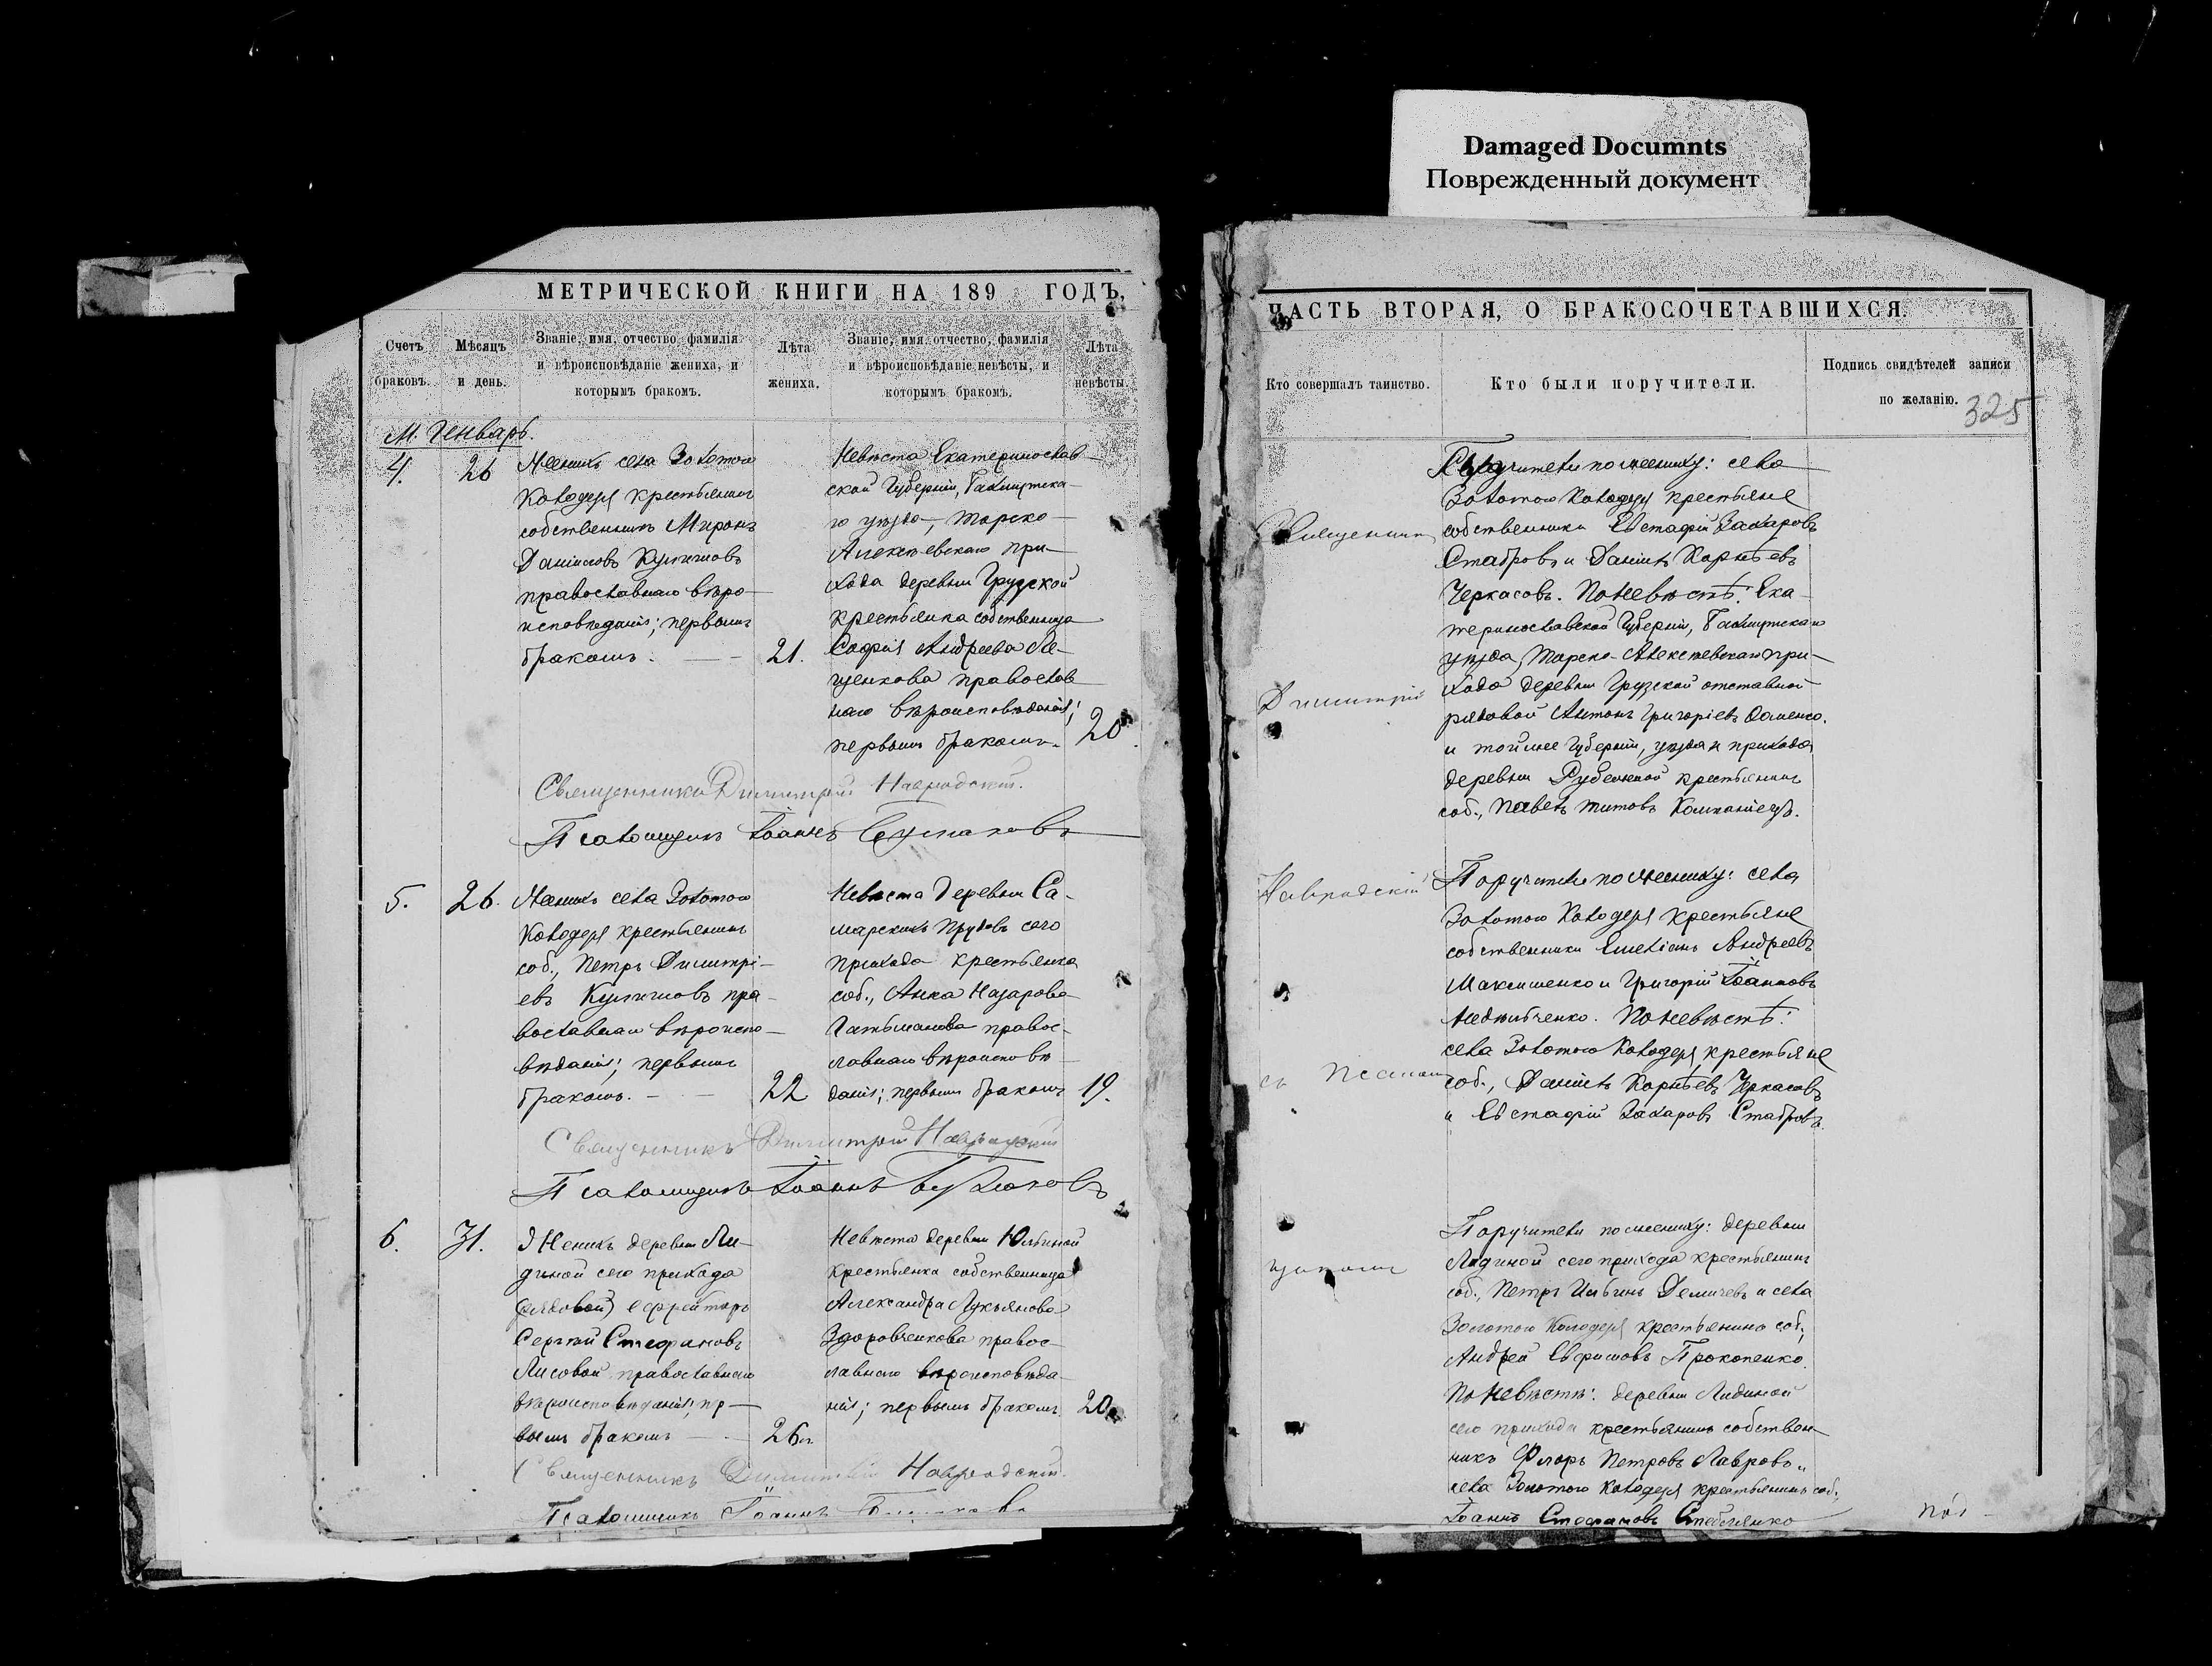 Damaged Documnts
Поврежденный документ
МЕТРИЧЕСКОЙ КНИГИ НА 189 ГОДЪ,
Счетъ браковъ.
Мѣсяцъ и день.
Званіе, имя, отчество, фамилія
и вѣроисповѣданіе жениха, и
которымъ бракомъ.
Лѣта жениха.
Званіе, имя, отчество, фамилія
и вѣроисповѣданіе невѣсты, и
которымъ бракомъ.
Лѣта невѣсты.
М. Генварь.
4.
26
Женихъ села Золотого
Колодезя крестьянинъ
собственникъ Миронъ
Даніиловъ
православнаго вѣро-
исповѣданія; первымъ
бракомъ.
21.
Невѣста Екатеринослав-
ской Губерніи, Бахмутска-
го уѣзда, Торско-
Алексѣевскаго при-
хода деревни Грузской
крестьянка собственница
Софія Андреева Ле-
щенкова православ-
наго вѣроисповѣданія;
первымъ бракомъ.
20.
Священникъ Димитрій Навродскій.
Псаломщикъ Іоаннъ
5.
26.
Женихъ села Золотого
Колодезя крестьянинъ
соб., Петръ Димитрі-
евъ пра-
вославнаго вѣроиспо-
вѣданія; первымъ
бракомъ.
22
Невѣста деревни Са-
марскихъ Прудовъ сего
прихода крестьянка
соб., Анна Назарова
правос-
лавнаго вѣроисповѣ-
данія; первымъ бракомъ
19.
Священникъ Димитрій Навродскій
Псаломщикъ Іоаннъ
6.
31.
Женихъ деревни Ли-
диной сего прихода
(рядовой) ефрейторъ
Сергѣй Стефановъ
Лисовой православнаго
вѣроисповѣданія; пер-
вымъ бракомъ
26.
Невѣста деревни Юльиной
крестьянка собственница
Александра Лукьянова
Здоровченкова правос-
лавнаго вѣроисповѣда-
нія; первымъ бракомъ.
20.
Священникъ Димитрій Навродскій.
Псаломщикъ Іоаннъ
ЧАСТЬ ВТОРАЯ, О БРАКОСОЧЕТАВШИХСЯ.
Кто совершалъ таинство.
Кто были поручители.
Подпись свидѣтелей записи
по желанію.
325
Священникъ
Димитрій
Навродскій
съ псалом
щикомъ
Поручители по жениху: села
Золотого Колодезя крестьяне
собственники Евстафій Захаровъ
Ставровъ и Даніилъ Корнѣевъ
Черкасовъ. По невѣстѣ: Ека-
теринославской Губерніи, Бахмутскаго
уѣзда, Торско-Алексѣевскаго при-
хода деревни Грузской отставной
рядовой Антонъ Григоріевъ
и той же Губерніи, уѣзда и прихода
деревни крестьянинъ
соб., Павелъ Титовъ Компаніецъ.
Поручители по жениху: села
Золотого Колодезя крестьяне
собственники Емеліанъ Андреевъ
Максименко и Григорій Іоанновъ
По невѣстѣ:
села Золотого Колодезя крестьяне
соб., Даніилъ Корнѣевъ Черкасовъ
и Евстафій Захаровъ Ставровъ.
Поручители по жениху: деревни
Лидиной сего прихода крестьянинъ
соб., Петръ Ильинъ Демичевъ и села
Золотого Колодезя крестьянинъ соб.,
Андрей Ефимовъ Прокопенко.
По невѣстѣ: деревни Лидиной
сего прихода крестьянинъ собствен-
никъ Флоръ Петровъ Лавровъ и
села Золотого Колодезя крестьянинъ соб.,
Іоаннъ Стефановъ Стеблянко